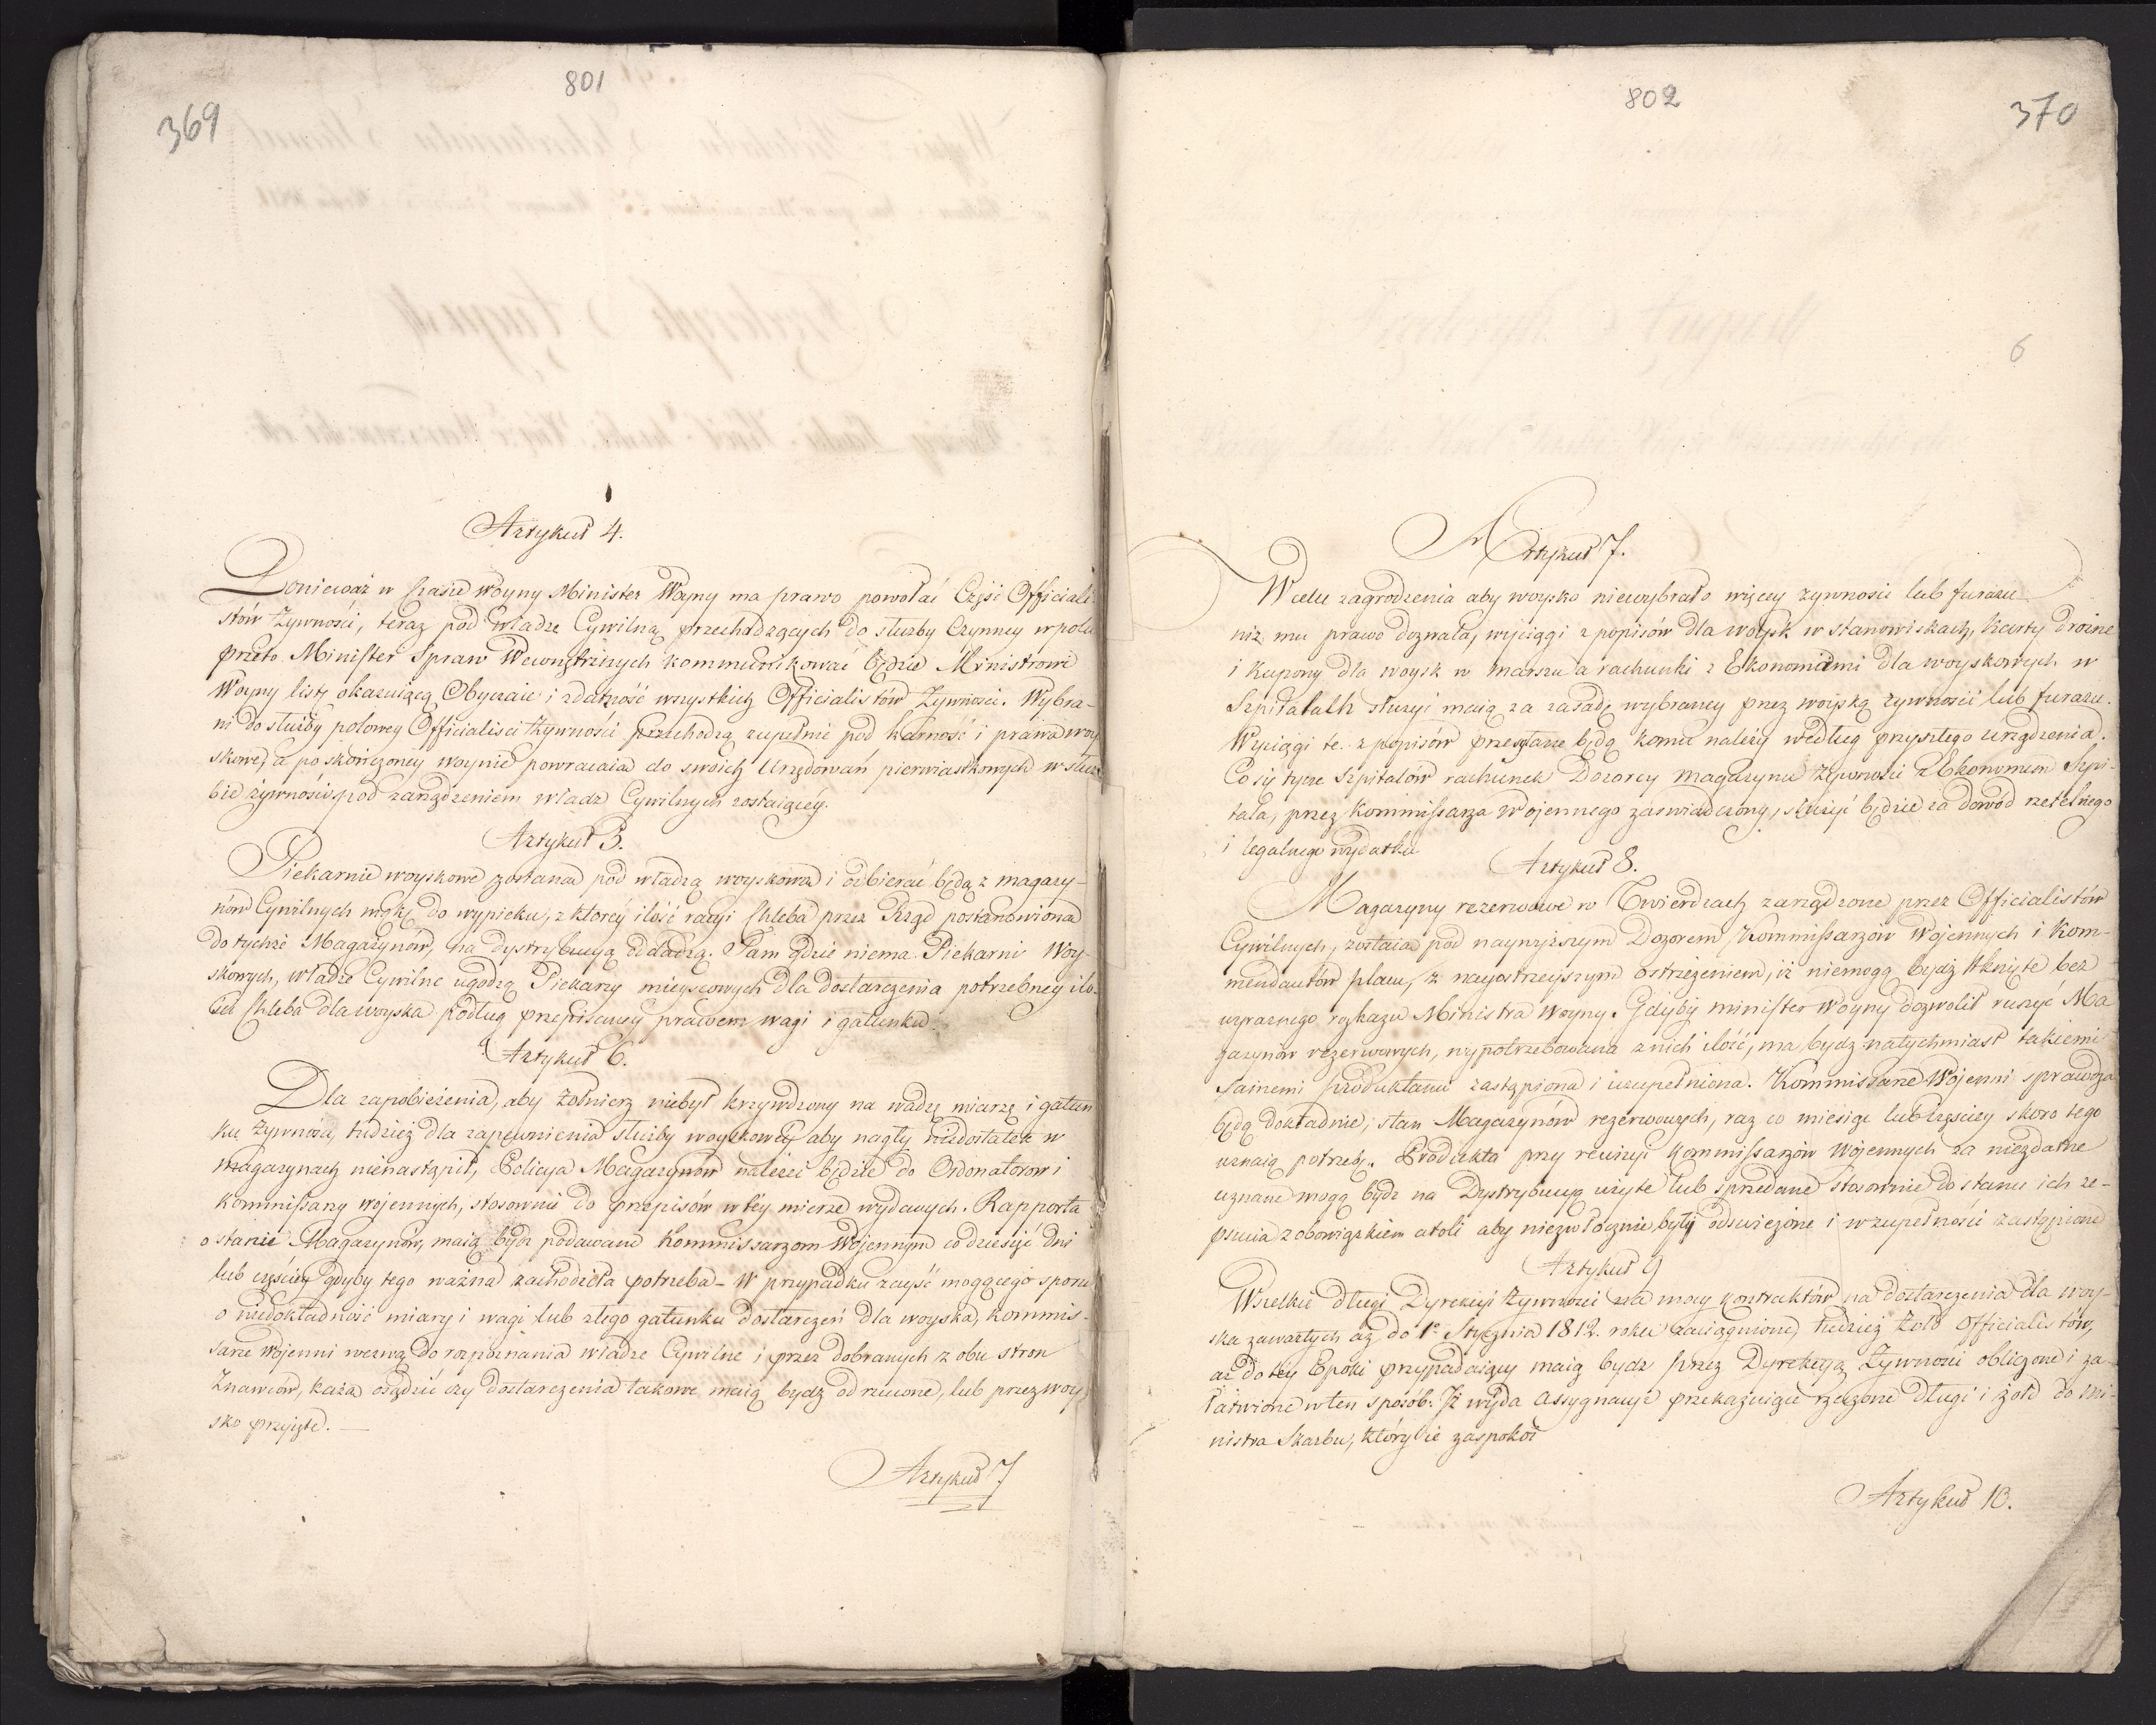 801
369
Artykuł 4.
Ponieważ w czasie woyny Minister Woyny ma prawo powołać Część Officiali-
stów Żywności, teraz pod Władzę Cywilną przechodzących do służby czynney w polu
przeto Minister Spraw Wewnętrznych kommunikować będzie Ministrowi
Woyny listę okazuiącą Obyczaie i zdatność wszystkich Officialistów Żywności. Wybra-
ni do służby polowey Officialiści Żywności przechodzą zupełnie pod karność i prawa woy-
skowe, a po skończoney woynie powracaią do swoich Urzędowań pierwiastkowych w słuz-
bie żywności pod zarządzeniem władz Cywilnych zostaiącéy.
Artykuł 5.
Piekarnie woyskowe zostaną pod władzą woyskową i odbierać będą z magazy-
nów Cywilnych mąkę do wypieku, z którey ilość racyi Chleba przez Rząd postanowioną
do tychże Magazynów, na dystrybucyą oddadzą. Tam gdzie niema Piekarni Woy-
skowych, władze Cywilne ugodzą Piekarzy mieyscowych dla dostarczenia potrzebney ilo-
ści Chleba dla woyska podług przepisaney prawem wagi i gatunku.
Artykuł 6.
Dla zapobieżenia, aby żołnierz niebył krzywdzony na wadze miarze i gatun
ku żywności, tudzież dla zapewnienia służby woyskowéy aby nagły niedostatek w
magazynach nienastąpił, Policya Magazynów należeć będzie do Ordonatorów i
Kommissarzy wojennych, stosownie do przepisów w téy mierze wydanych. Rapporta
o stanie Magazynów, maią bydź podawane Kommissarzom Wojennym co dziesięć dni
lub częściéy gdyby tego ważna zachodziła potrzeba – W przypadku zayść mogącego sporu
o niedokładność miary i wagi lub złego gatunku dostarczeń dla woyska, kommis-
sarze Wojenni wezwą do rozpoznania władze Cywilne i przez dobranych z obu stron
Znawców, każą osądzić czy dostarczenia takowe maią bydź odrzucone, lub przez woy-
sko przyięte. —
Artykuł 7
802
370
6
Artykuł 7.
W celu zagrodzenia aby woysko niewybrało więcey żywności lub furażu
niż mu prawo dozwala, wyciągi z popisów dla woysk w stanowiskach, karty drożne
i kupony dla woysk w marszu a rachunki z Ekonomami dla woyskowych w
Szpitalach służyć maią za zasadę wybraney przez woyską żywności lub furażu.
Wyciągi te z popisów przesłane będą komu należy według przyszłego urządzenia.
Co się tycze Szpitalów rachunek Dozorcy magazynu żywności z Ekonomem Szpi-
tala, przez Kommissarza Wojennego zaświadczony, służyć będzie za dowód rzetelnego
i legalnego wydatku
Artykuł 8.
Magazyny rezerwowe w Twierdzach zarządzone przez Officialistów
Cywilnych, zostaią pod naywyższym Dozorem Kommissarzów Wojennych i Kom-
mendantów placu, z nayostrzeyszym ostrzeżeniem, iż niemogą bydź tknięte bez
wyraznego rozkazu Ministra Woyny. Gdyby minister Woyny dozwolił ruszyć Ma
gazynów rezerwowych, wypotrzebowana z nich ilość, ma bydz natychmiast takiemi
samemi produktami zastąpiona i uzupełniona. Kommissarze Wojenni sprawdzą
będą dokładnie, stan Magazynów rezerwowych, raz co miesiąc lub częściey skoro tego
uznaią potrzebę. Produkta przy rewizyi Kommissarzów Wojennych za niezdatne
uznane mogą bydz na Dystrybucyą użyte lub sprzedane stosownie do stanu ich ze-
psucia z obowiązkiem atoli aby niezwłocznie były odświeżone i w zupełności zastąpione
Artykuł 9
Wszelkie długi Dyrekcyi Żywności na mocy kontraktów na dostarczenia dla woy-
ska zawartych aż do 1º Stycznia 1812. roku zaciągnione, tudzież żołd Officialistów,
aż do tey Epoki przypadaiący maią bydz przez Dyrekcyą Żywności obliczone i za-
łatwione w ten sposób: Iż wyda assygnacye przekazuiące rzeczone długi i żołd do Mi-
nistra Skarbu, który ie zaspokoi
Artykuł 10.